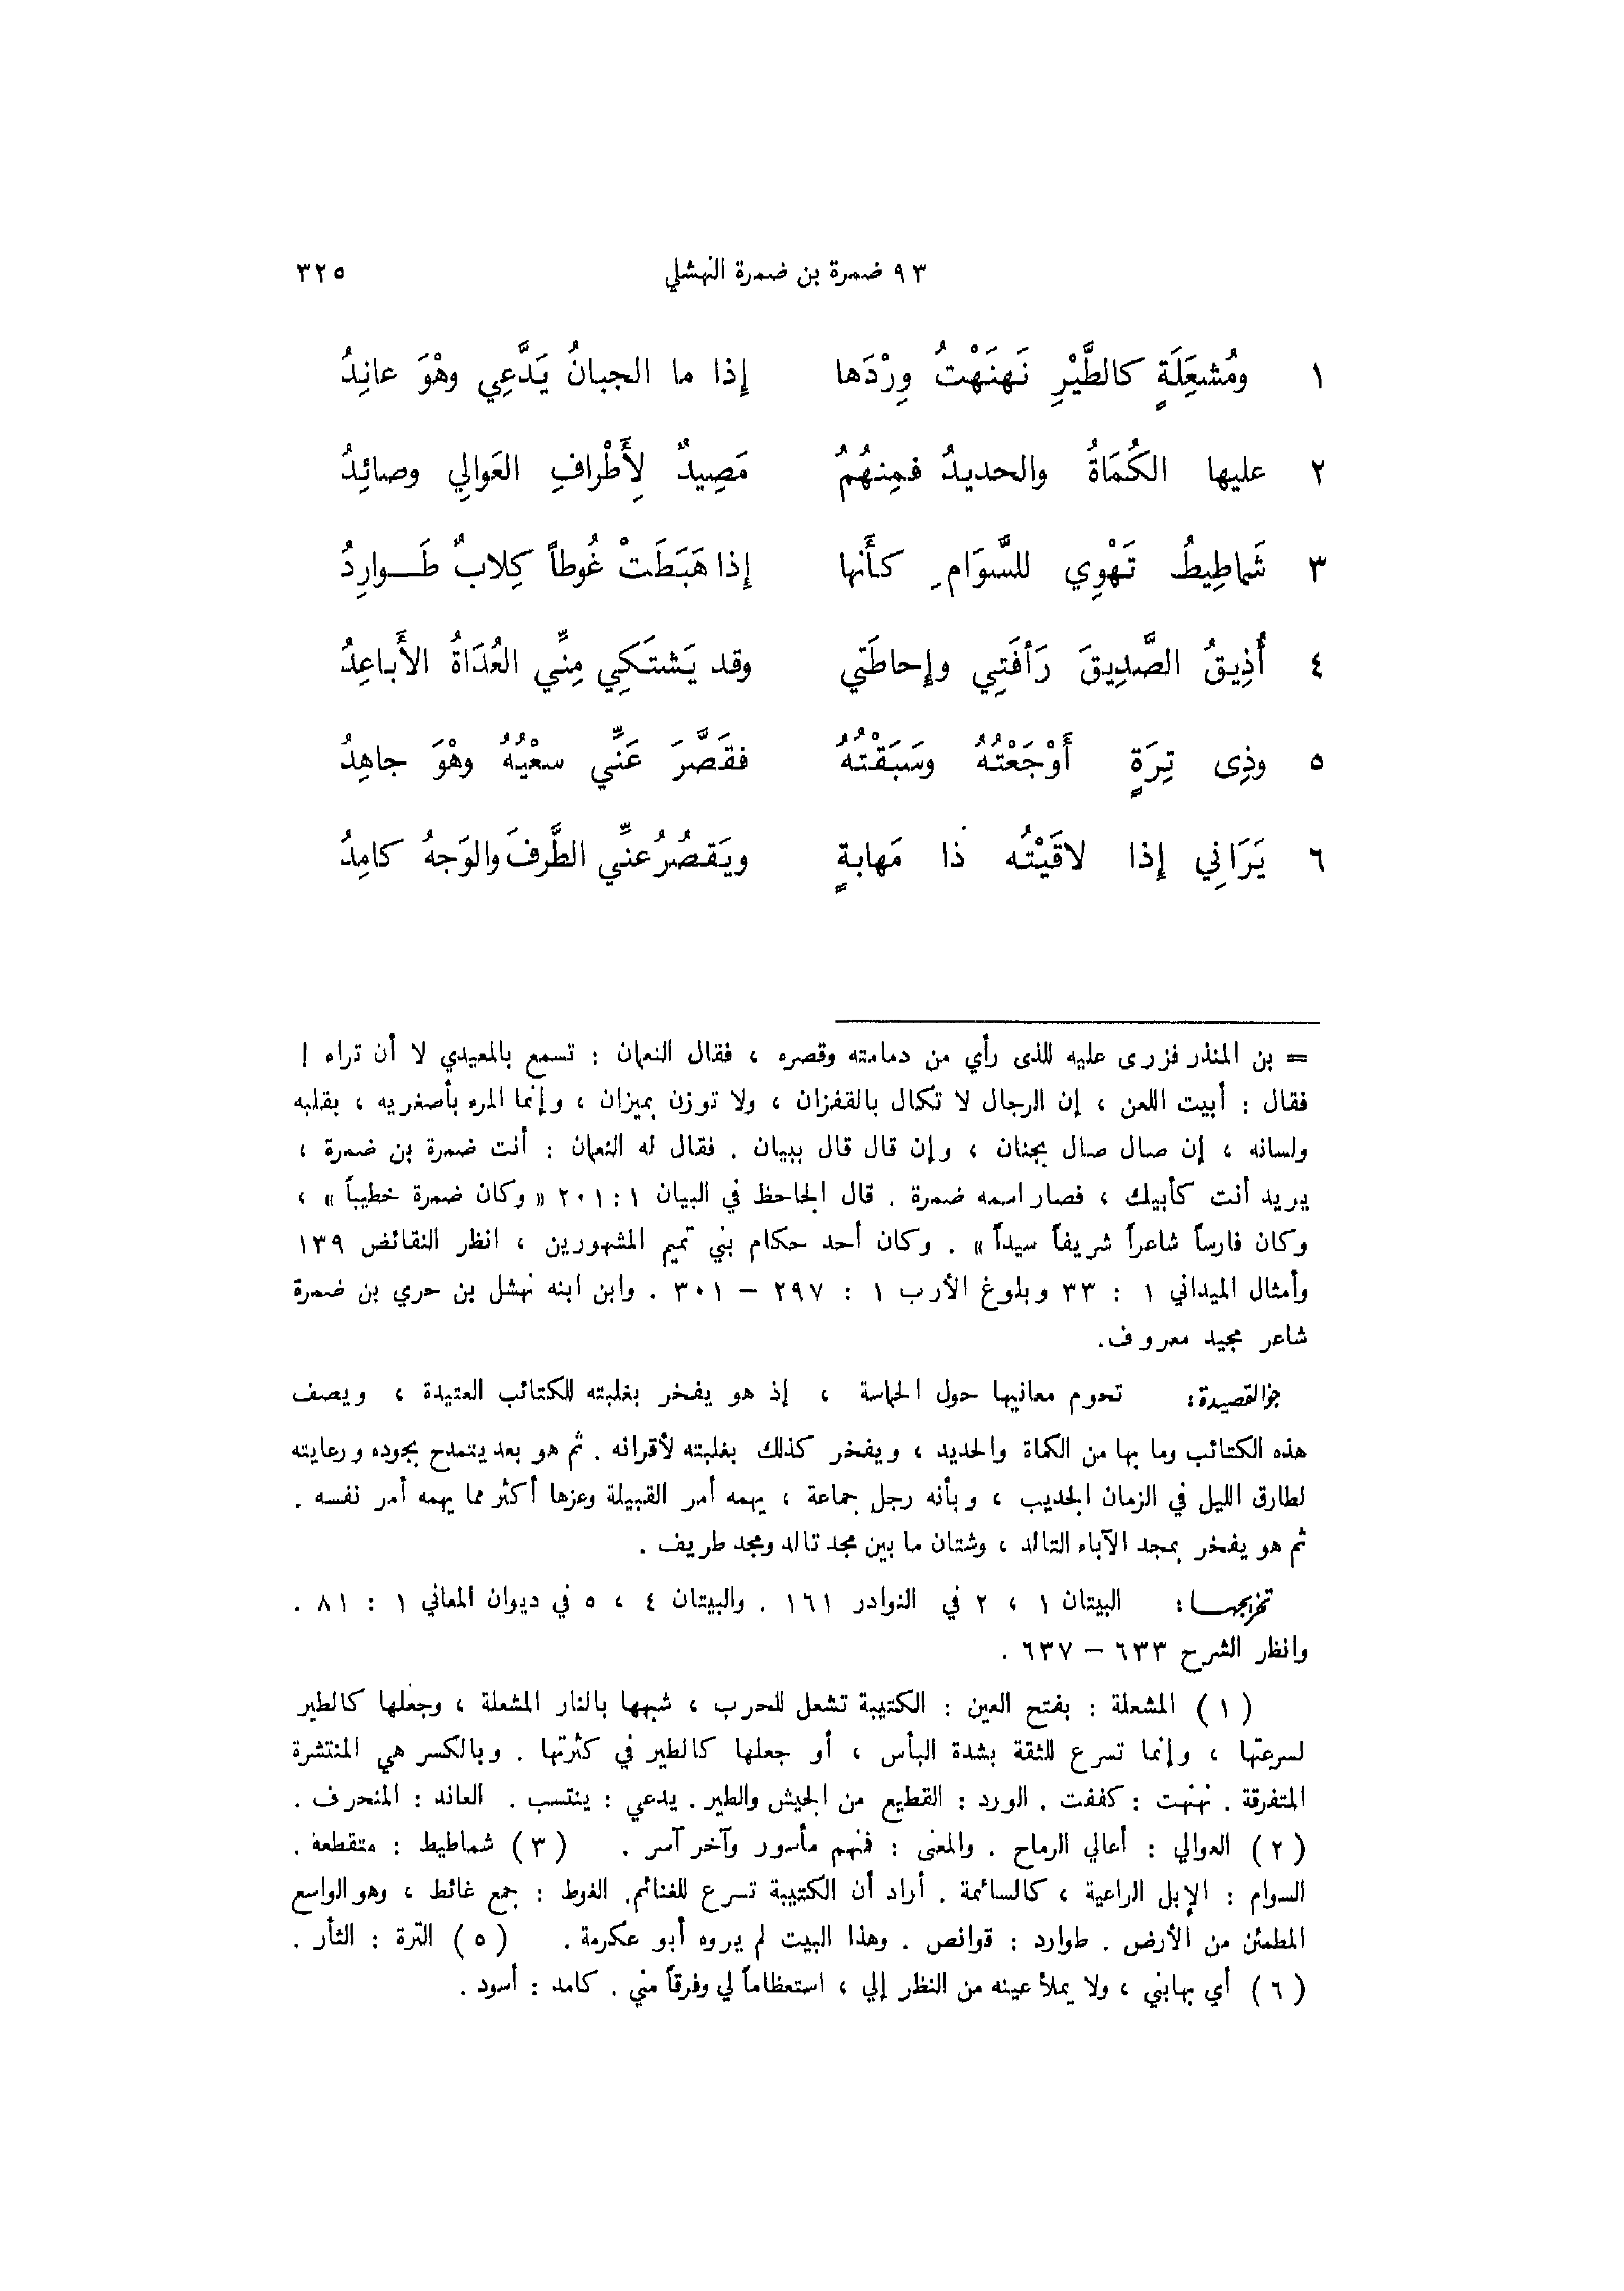 ٩٣ ضمرة بن ضمرة النهشلي ٣٢٥
١ ومُشعِلَةٍ كالطَّيْرِ نَهنَهْتُ وِرْدَها إِذا ما الجبانُ يَدَّعِي وهْوَ عانِدُ
٢ عليها الكُمَاةُ والحديدُ فمِنهُمُ مَصِيدٌ لِأَطْرافِ العَوالِي وصائِدُ
٣ شَماطِيطُ تَهْوِي للسَّوَامِ كأَنها إِذا هَبَطَتْ غُوطاً كِلابٌ طَـوارِدُ
٤ أُذِيقُ الصَّدِيقَ رَأفَتِي وإِحاطَتي وقد يَشتَكِي مِنِّي العُدَاةُ الأَباعِدُ
٥ وذِى تِرَةٍ أَوْجَعْتُهُ وسَبَقْتُهُ فقَصَّرَ عَنِّي سعْيُهُ وهْوَ جاهِدُ
٦ يَرَانِي إِذا لاقَيْتُه ذا مَهابةٍ ويَقصُرُ عنِّي الطَّرفَ والوَجهُ كامِدُ
= بن المنذر فزرى عليه للذى رأي من دمامته وقصره ، فقال النعمان : تسمع بالمعيدي لا أن تراه !
فقال : أبيت اللعن ، إن الرجال لا تكال بالقفزان ، ولا توزن بميزان ، وإنما المرء بأصغريه ، بقلبه
ولسانه ، إن صال صال بجنان ، وإن قال قال ببيان . فقال له النعمان : أنت ضمرة بن ضمرة ،
يريد أنت كأبيك ، فصار اسمه ضمرة . قال الجاحظ في البيان ١ : ٢٠١ « وكان ضمرة خطيباً » ،
وكان فارساً شاعراً شريفاً سيداً » . وكان أحد حكام بني تميم المشهورين ، انظر النقائض ١٣٩
وأمثال الميداني ١ : ٣٣ وبلوغ الأرب ١ : ٢٩٧ – ٣٠١ . وابن ابنه نهشل بن حري بن ضمرة
شاعر مجيد معروف.
جوالقصيدة: تحوم معانيها حول الحماسة ، إذ هو يفخر بغلبته للكتائب العتيدة ، ويصف
هذه الكتائب وما بها من الكماة والحديد ، ويفخر كذلك بغلبته لأقرانه . ثم هو بعد يتمدح بجوده ورعايته
لطارق الليل في الزمان الجديب ، وبأنه رجل جماعة ، يهمه أمر القبيلة وعزها أكثر مما يهمه أمر نفسه .
ثم هو يفخر بمجد الآباء التالد ، وشتان ما بين مجد تالد ومجد طريف .
تخريجهـا: البيتان ١ ، ٢ في النوادر ١٦١ . والبيتان ٤ ، ٥ في ديوان المعاني ١ : ٨١ .
وانظر الشرح ٦٣٣ – ٦٣٧ .
( ١ ) المشعلة : بفتح العين : الكتيبة تشعل للحرب ، شبهها بالنار المشعلة ، وجعلها كالطير
لسرعتها ، وإنما تسرع للثقة بشدة البأس ، أو جعلها كالطير في كثرتها . وبالكسر هي المنتشرة
المتفرقة . نهنهت : كففت . الورد : القطيع من الجيش والطير . يدعي : ينتسب . العاند : المنحرف .
( ٢ ) العوالي : أعالي الرماح . والمعنى : فمنهم مأسور وآخر آسر . ( ٣ ) شماطيط : متقطعة .
السوام : الإبل الراعية ، كالسائمة . أراد أن الكتيبة تسرع للغنائم. الغوط : جمع غائط ، وهو الواسع
المطمئن من الأرض . طوارد : قوانص . وهذا البيت لم يروه أبو عكرمة . ( ٥ ) الترة : الثأر .
( ٦ ) أي يهابني ، ولا يملأ عينه من النظر إلي ، استعظاماً لي وفرقاً مني . كامد : أسود .